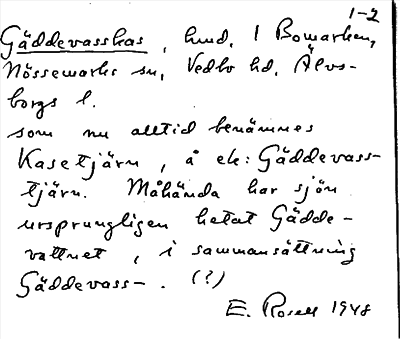 1-2
Gäddevasskas, hmd, 1 Bowarken,
Nössemarks sn, Vedbo hd, Älvs-
borgs l.
som nu alltid benämnes
Kasetjärn, å ek: Gäddevass-
tjärn. Måhända har sjön
ursprungligen hetat Gädde-
vattnet, i sammansättning
Gäddevass-. (?)
E. Rosell 1948